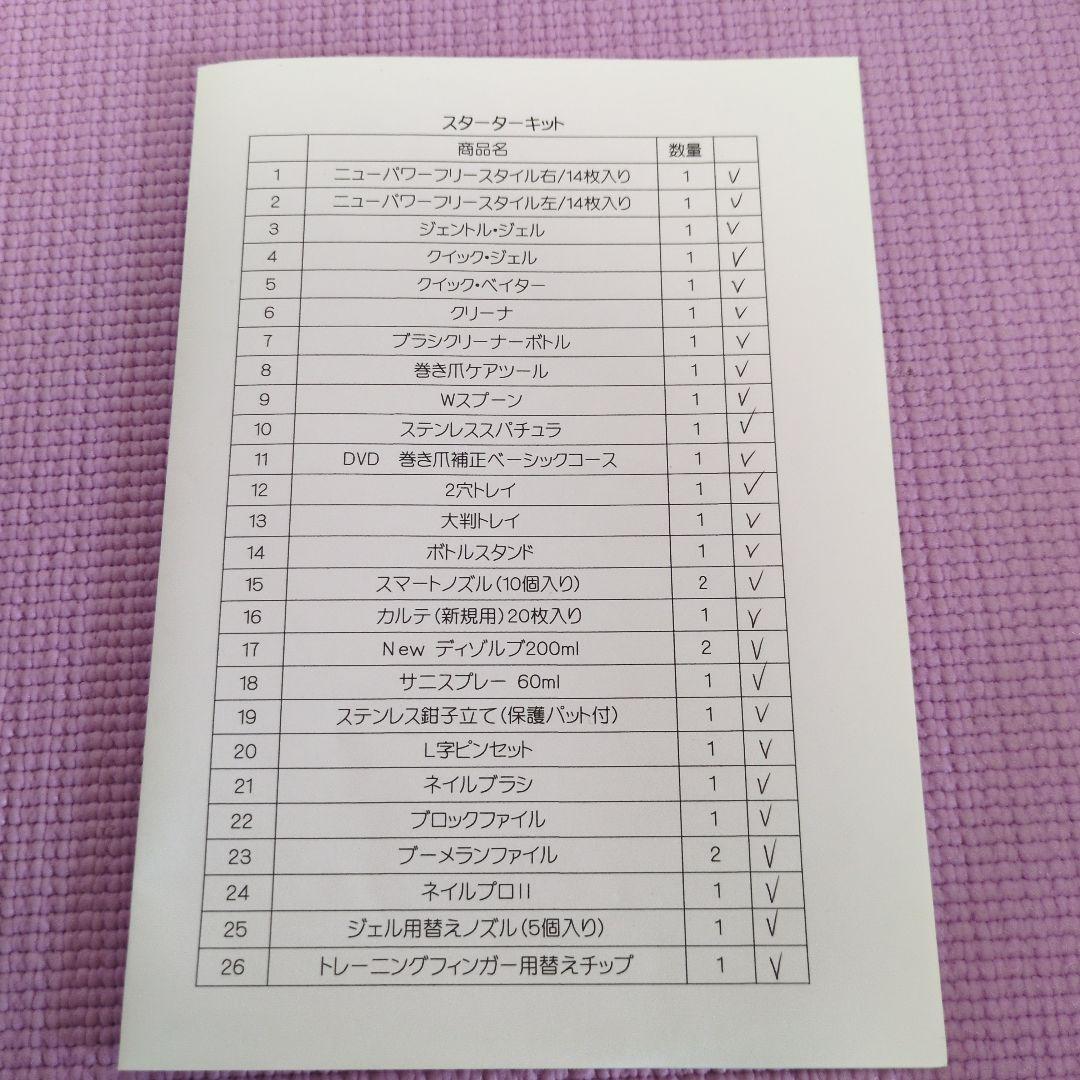 スターターキット
商品名 数量
1 ニューパワーフリースタイル右/14枚入り 1 ✓
2 ニューパワーフリースタイル左/14枚入り 1 ✓
3 ジェントル・ジェル 1 ✓
4 クイック・ジェル 1 ✓
5 クイック・ベイター 1 ✓
6 クリーナ 1 ✓
7 ブラシクリーナーボトル 1 ✓
8 巻き爪ケアツール 1 ✓
9 Wスプーン 1 ✓
10 ステンレススパチュラ 1 ✓
11 DVD 巻き爪補正ベーシックコース 1 ✓
12 2穴トレイ 1 ✓
13 大判トレイ 1 ✓
14 ボトルスタンド 1 ✓
15 スマートノズル(10個入り) 2 ✓
16 カルテ(新規用)20枚入り 1 ✓
17 New ディゾルブ200ml 2 ✓
18 サニスプレー 60ml 1 ✓
19 ステンレス鉗子立て(保護パット付) 1 ✓
20 L字ピンセット 1 ✓
21 ネイルブラシ 1 ✓
22 ブロックファイル 1 ✓
23 ブーメランファイル 2 ✓
24 ネイルプロII 1 ✓
25 ジェル用替えノズル(5個入り) 1 ✓
26 トレーニングフィンガー用替えチップ 1 ✓